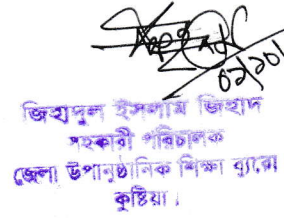 ০২/১০/
জিহাদুল ইসলাম জিহাদ
সহকারী পরিচালক
জেলা উপানুষ্ঠানিক শিক্ষা ব্যুরো
কুষ্টিয়া।